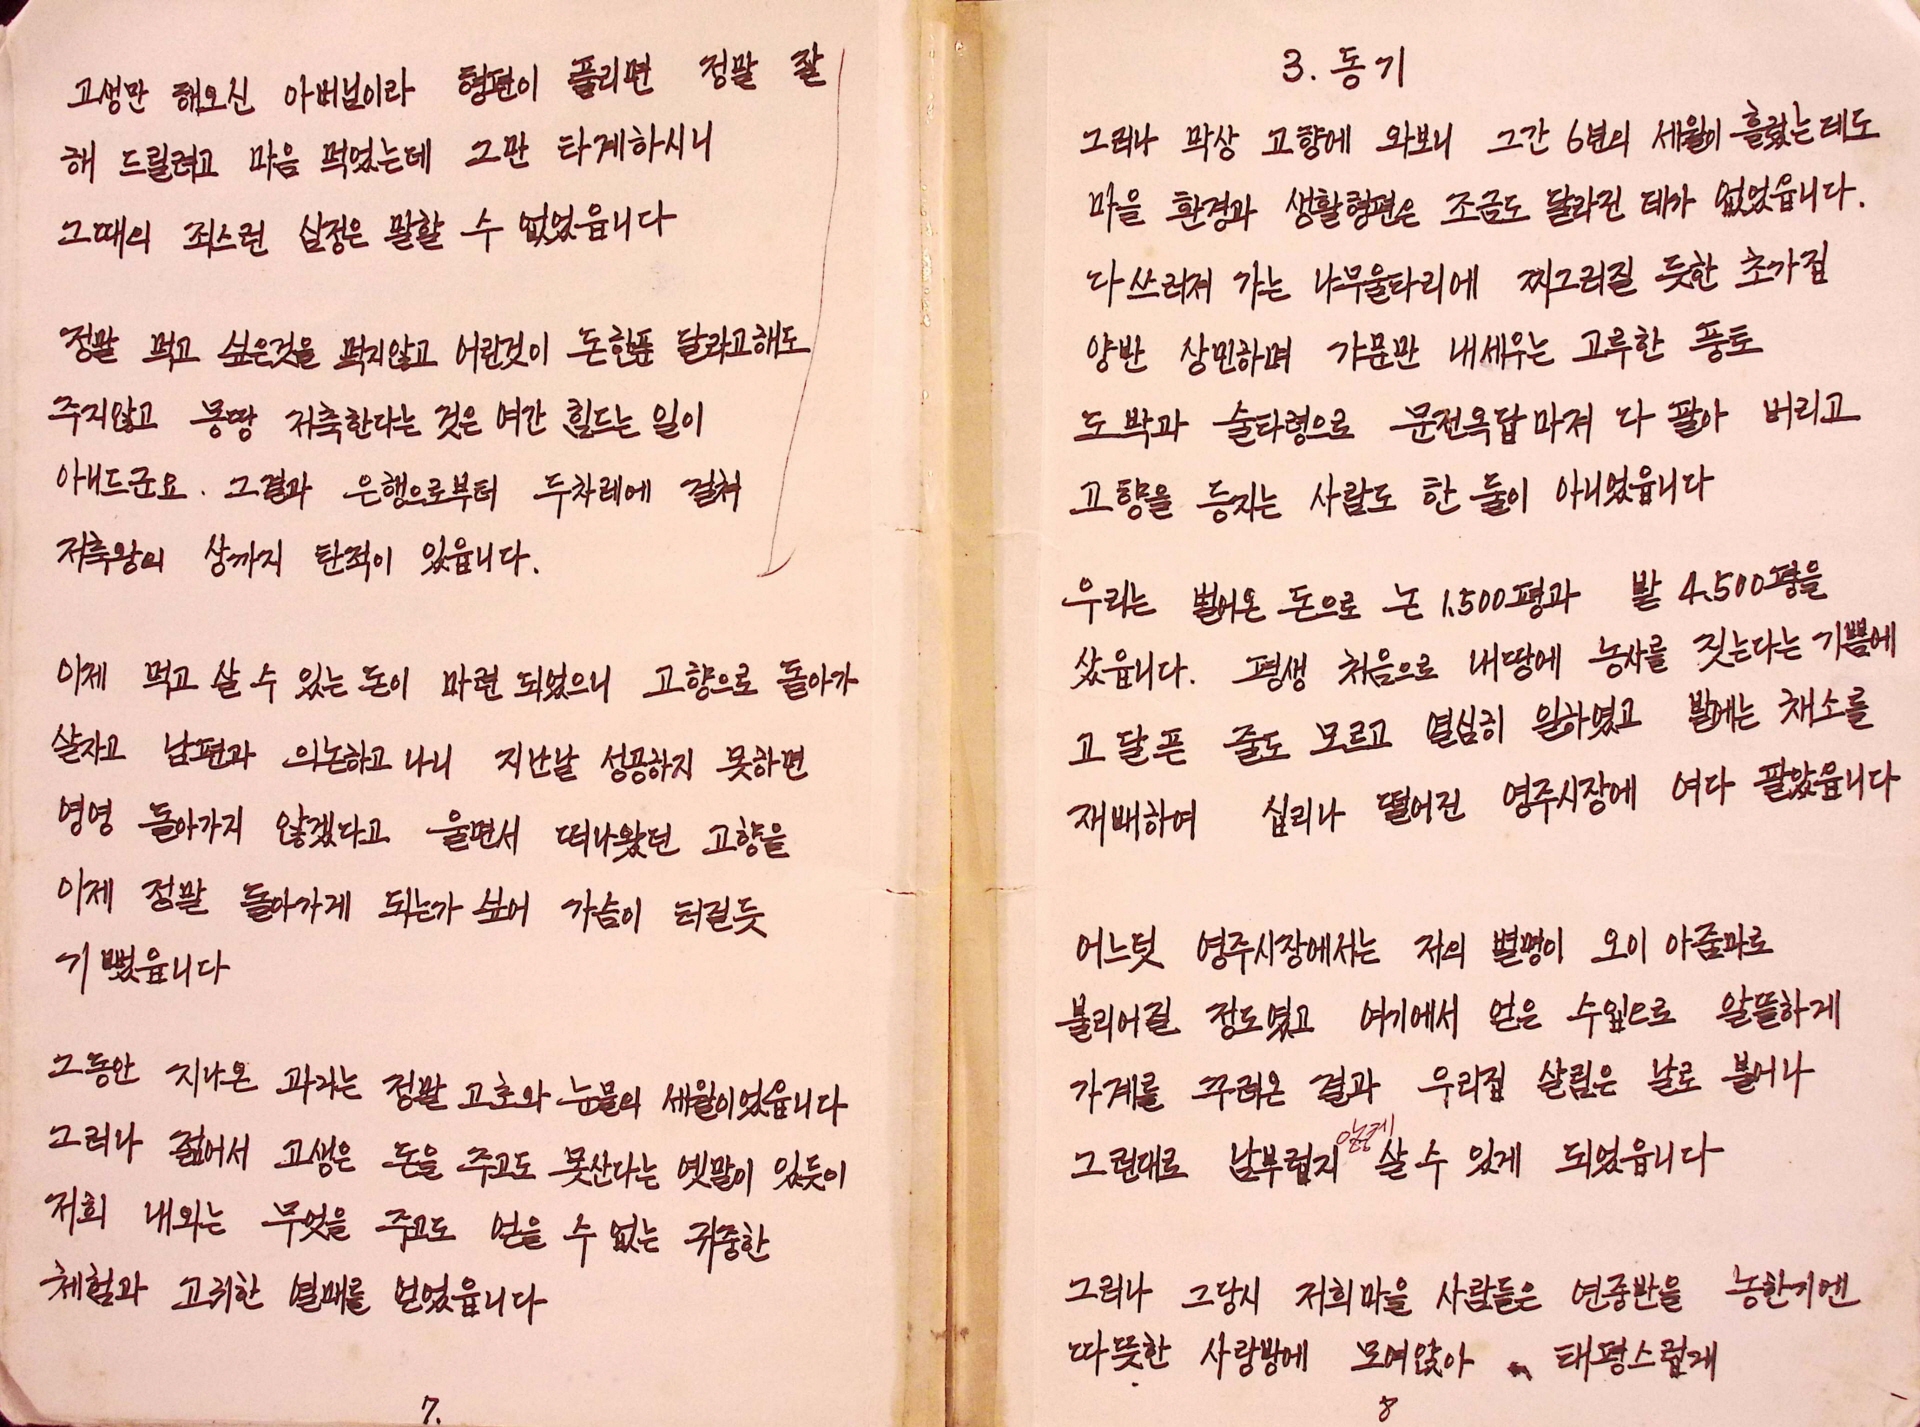 고생만 해오신 아버님이라 형편이 풀리면 정말 잘
해 드릴려고 마음 먹었는데 그만 타계하시니
그때의 죄스런 심정은 말할 수 없었읍니다
정말 먹고 싶은것을 먹지않고 어린것이 돈한푼 달라고해도
주지않고 몽땅 저축한다는 것은 여간 힘드는 일이
아니드군요. 그결과 은행으로부터 두차레에 걸쳐
저축왕의 상까지 탄적이 있읍니다.
이제 먹고 살 수 있는 돈이 마련 되었으니 고향으로 돌아가
살자고 남편과 의논하고 나니 지난날 성공하지 못하면
영영 돌아가지 않겠다고 울면서 떠나왔던 고향을
이제 정말 돌아가게 되는가 싶어 가슴이 터질듯
기뻤읍니다
그동안 지나온 과거는 정말 고초와 눈물의 세월이었읍니다
그러나 젊어서 고생은 돈을 주고도 못산다는 옛말이 있듯이
저희 내외는 무엇을 주고도 얻을 수 없는 귀중한
체험과 고귀한 열매를 얻었읍니다
7.
3. 동기
그러나 막상 고향에 와보니 그간 6년의 세월이 흘렀는데도
마을 환경과 생활형편은 조금도 달라진 데가 없었읍니다.
다 쓰러져 가는 나무울타리에 찌그러질 듯한 초가집
양반 상민하며 가문만 내세우는 고루한 풍토
도박과 술타령으로 문전옥답마져 다 팔아 버리고
고향을 등지는 사람도 한 둘이 아니었읍니다
우리는 벌어온 돈으로 논 1,500평과 밭 4,500평을
샀읍니다. 평생 처음으로 내땅에 농사를 짓는다는 기쁨에
고달픈 줄도 모르고 열심히 일하였고 밭에는 채소를
재배하여 십리나 떨어진 영주시장에 여다 팔았읍니다
어느덧 영주시장에서는 저의 별명이 오이 아줌마로
불리어질 정도였고 여기에서 얻은 수입으로 알뜰하게
가계를 꾸려온 결과 우리집 살림은 날로 불어나
그런대로 남부럽지 않게 살 수 있게 되었읍니다
그러나 그당시 저희마을 사람들은 연중반을 농한기엔
따뜻한 사랑방에 모여앉아 태평스럽게
8